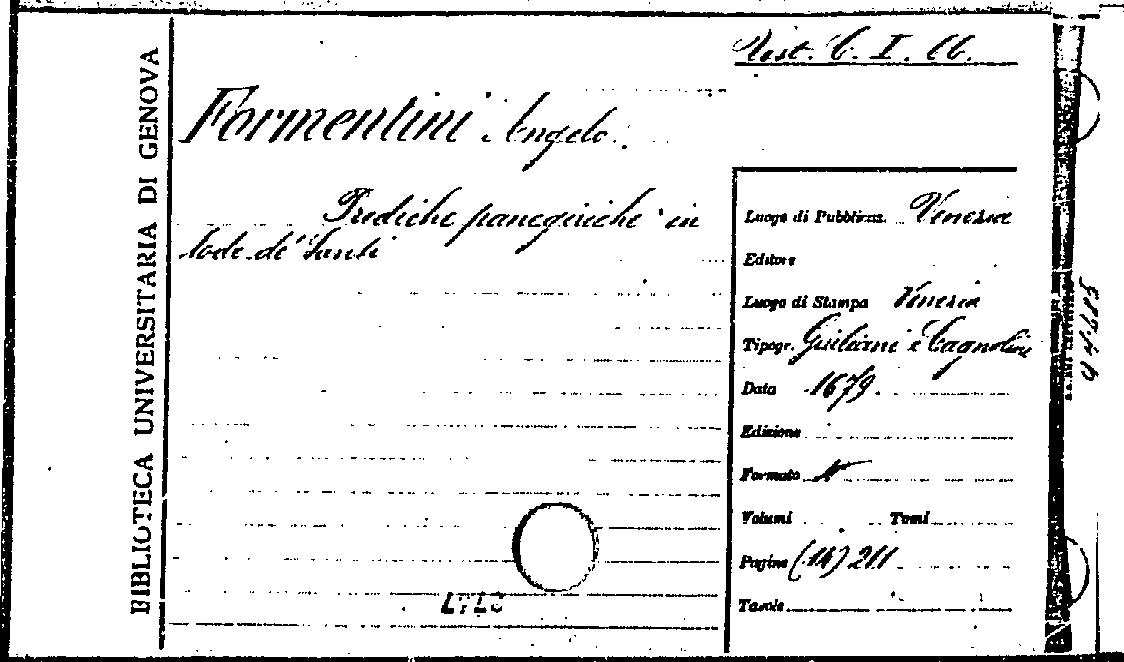 BIBLIOTECA UNIVERSITARIA DI GENOVA
Formentini Angelo.
Prediche panegiriche in
lode de' Santi
Luogo di Pubblicaz. Venezia
Editore
Luogo di Stampa Venezia
Tipogr. Giuliani e Cagnolini
Data 1679
Edizione
Formato
Volumi Tomi
Pagine (14) 211
Tavole